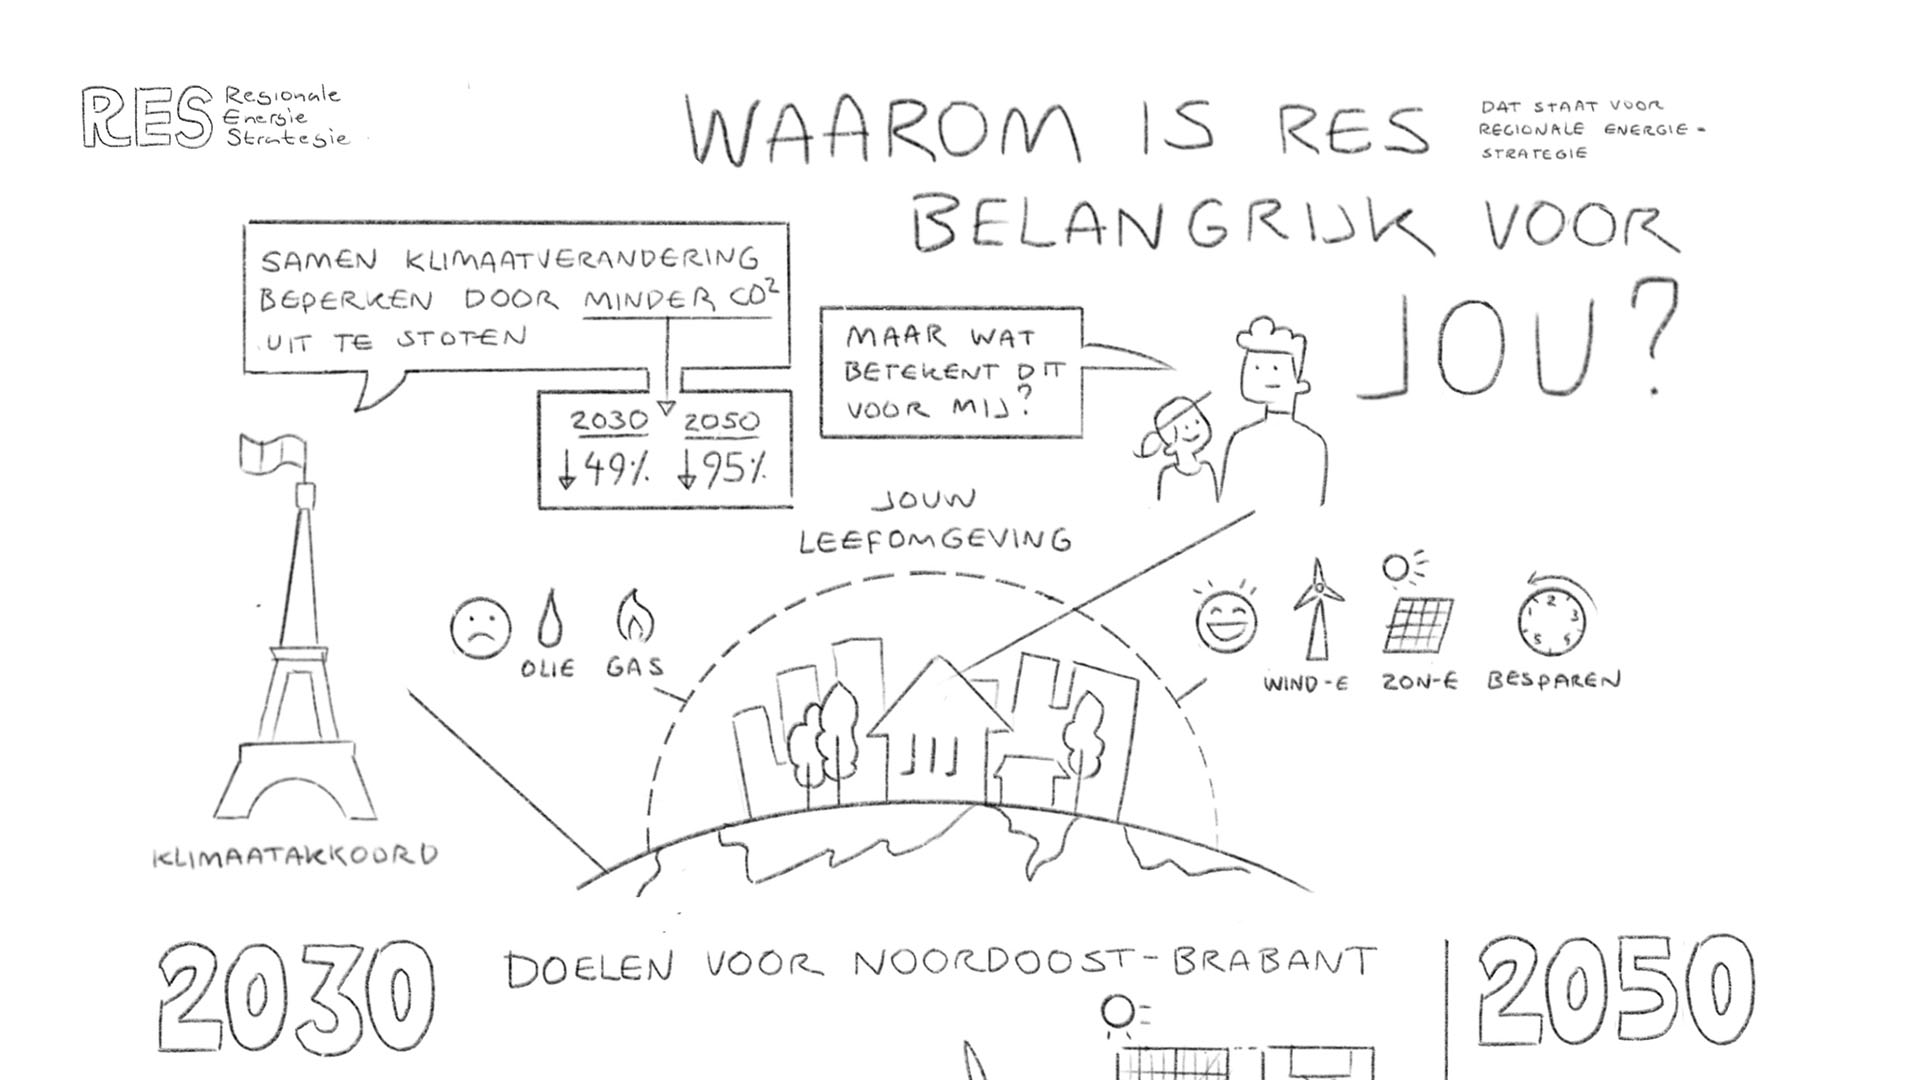 RES Regionale
Energie
Strategie
WAAROM IS RES
DAT STAAT VOOR
REGIONALE ENERGIE-
STRATEGIE
BELANGRIJK VOOR
JOU?
SAMEN KLIMAATVERANDERING
BEPERKEN DOOR MINDER CO²
UIT TE STOTEN
2030 2050
↓49% ↓95%
MAAR WAT
BETEKENT DIT
VOOR MIJ?
JOUW
LEEFOMGEVING
OLIE GAS
WIND-E ZON-E BESPAREN
1 2 3 4 5
KLIMAATAKKOORD
2030 DOELEN VOOR NOORDOOST-BRABANT 2050